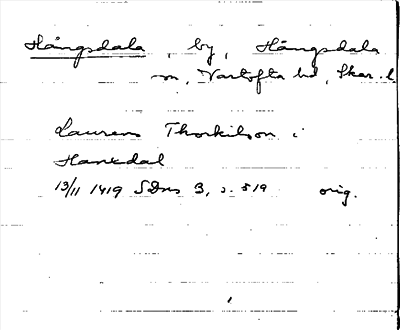 Hångsdala, by, Hångsdala
sn, Vartofta hd, Skar. l.
Laurens Thorkilson i
Hanxdal
13/11 1419 SDns 3, s. 519 orig.